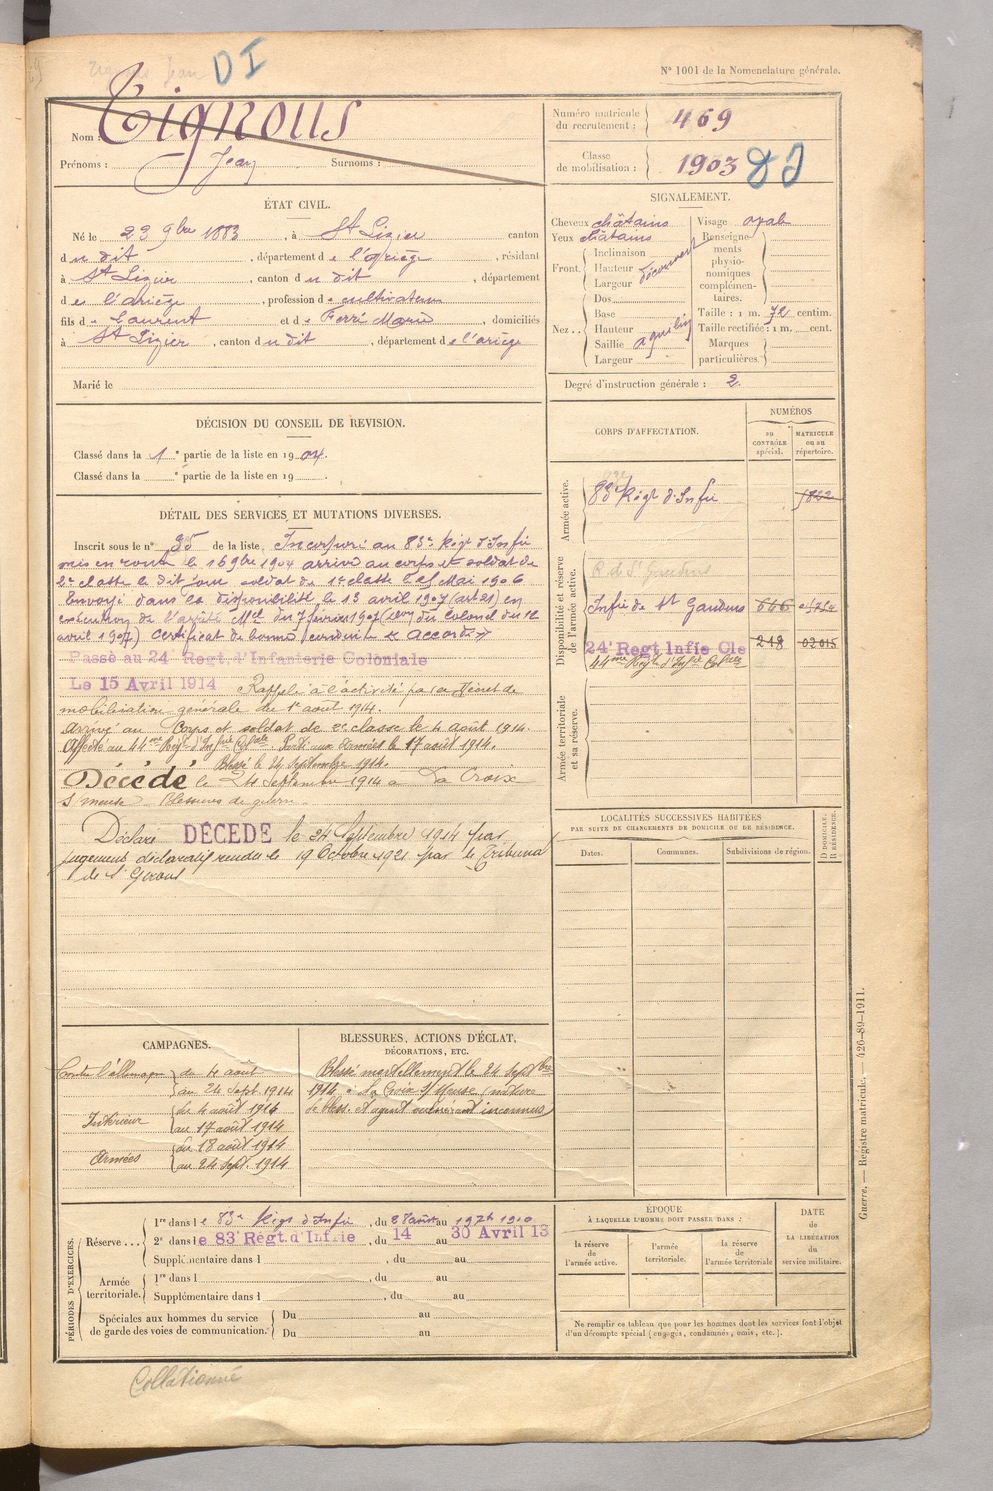 DI
N° 1001 de la Nomenclature générale.
Nom : Tignous
Prénoms : Jean Surnoms :
Numéro matricule du recrutement : 469
Classe de mobilisation : 1903 DI
ÉTAT CIVIL.
Né le 23 9bre 1883, à St Lizier canton
du dit, département de l'ariège, résidant
à St Lizier, canton du dit, département
de l'ariège, profession de cultivateur
fils de Laurent et de Ferré Marie, domiciliés
à St Lizier, canton du dit, département de l'ariège
Marié le
SIGNALEMENT.
Cheveux châtains
Yeux châtains
Front. Inclinaison
Hauteur découvert
Largeur
Nez.. Dos
Base
Hauteur
Saillie aquilin
Largeur
Visage oval
Renseignements physionomiques complémentaires.
Taille : 1 m. 72 centim.
Taille rectifiée : 1 m. cent.
Marques particulières.
Degré d'instruction générale : 2
DÉCISION DU CONSEIL DE REVISION.
Classé dans la 1e partie de la liste en 1904.
Classé dans la e partie de la liste en 19 .
DÉTAIL DES SERVICES ET MUTATIONS DIVERSES.
Inscrit sous le n° 35 de la liste. Incorporé au 83e Régt d'Infie
mis en route le 16 9bre 1904 arrivé au corps et soldat de
2e classe le dit jour soldat de 1e classe le Mai 1906
Envoyé dans la disponibilité le 13 avril 1907 (art 21) en
exécution de l'arrêté Mel du 7 février 1907 du Colonel du 12
avril 1907) Certificat de bonne conduite accordé
Passé au 24 Regt d'Infanterie Coloniale
Le 15 Avril 1914 Rappelé à l'activité par Décret de
mobilisation générale du 1er août 1914.
arrivé au Corps et soldat de 2e classe le 4 août 1914.
Affecté au 44me Régt d'Infie Colale. Parti aux armées le 17 août 1914.
Blessé le 24 Septembre 1914.
Décédé le 24 Septembre 1914 à La Croix
s/ meuse Blessures de guerre.
Déclaré DÉCÉDÉ le 24 Septembre 1914 par
jugement déclaratif rendu le 19 Octobre 1921 par le Tribunal
de St Girons
CORPS D'AFFECTATION.
NUMÉROS
au CONTRÔLE spécial.
MATRICULE ou au répertoire.
Armée active.
83e Régt d'Infie 1822
Disponibilité et réserve de l'armée active.
R. de St Gaudens
Infie de St Gaudens 646
24e Regt Infie Cle 248 02015
44me Régt d'Infie Colale
Armée territoriale et sa réserve.
LOCALITÉS SUCCESSIVES HABITÉES
PAR SUITE DE CHANGEMENTS DE DOMICILE OU DE RÉSIDENCE.
Dates. Communes. Subdivisions de région. D DOMICILE. R RÉSIDENCE.
CAMPAGNES.
Contre l'allemagne du 4 août
au 24 Sept. 1914
Intérieur du 4 août 1914
au 17 août 1914
Armées du 18 août 1914
au 24 Sept. 1914
BLESSURES, ACTIONS D'ÉCLAT,
DÉCORATIONS, ETC.
Blessé mortellement le 24 Septbre
1914 à La Croix s/ Meuse (nature
de bless. et agent vulnérant inconnus)
PÉRIODES D'EXERCICES.
Réserve... 1re dans le 83e Régt d'Infie, du 28 août au 19 7b 1910
2e dans le 83e Régt. d'Infrie, du 14 au 30 Avril 13
Supplémentaire dans l , du au
Armée territoriale. 1re dans l , du au
Supplémentaire dans l , du au
Spéciales aux hommes du service de garde des voies de communication. Du au
Du au
ÉPOQUE
À LAQUELLE L'HOMME DOIT PASSER DANS :
la réserve de l'armée active.
l'armée territoriale.
la réserve de l'armée territoriale
DATE de LA LIBÉRATION du service militaire.
Ne remplir ce tableau que pour les hommes dont les services font l'objet
d'un décompte spécial (engagés, condamnés, omis, etc.).
Guerre. — Registre matricule. — 426-89-1911.
Collationné